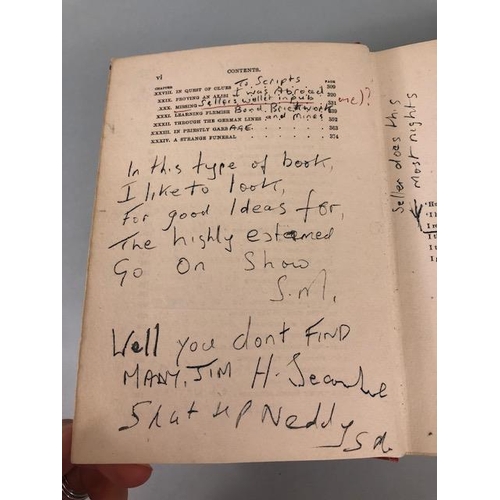 vi
CONTENTS.
CHAPTER PAGE
XXVIII. IN QUEST OF CLUES To Scripts 309
XXIX. PROVING AN ALIBI I was Abroad 320
XXX. MISSING Sellers wallet in pub me)?
XXXI. LEARNING FLEMISH Bond Brickwork
XXXII. THROUGH THE GERMAN LINES and Mines 352
XXXIII. IN PRIESTLY GARB AGE. 363
XXXIV. A STRANGE FUNERAL 374
In this type of book,
I like to look,
For good Ideas for,
The highly esteemed
Go On Show
S.M.
Well you dont FIND
MANY, JIM H. Secombe
Shut up Neddy
Seller does this
Most nights